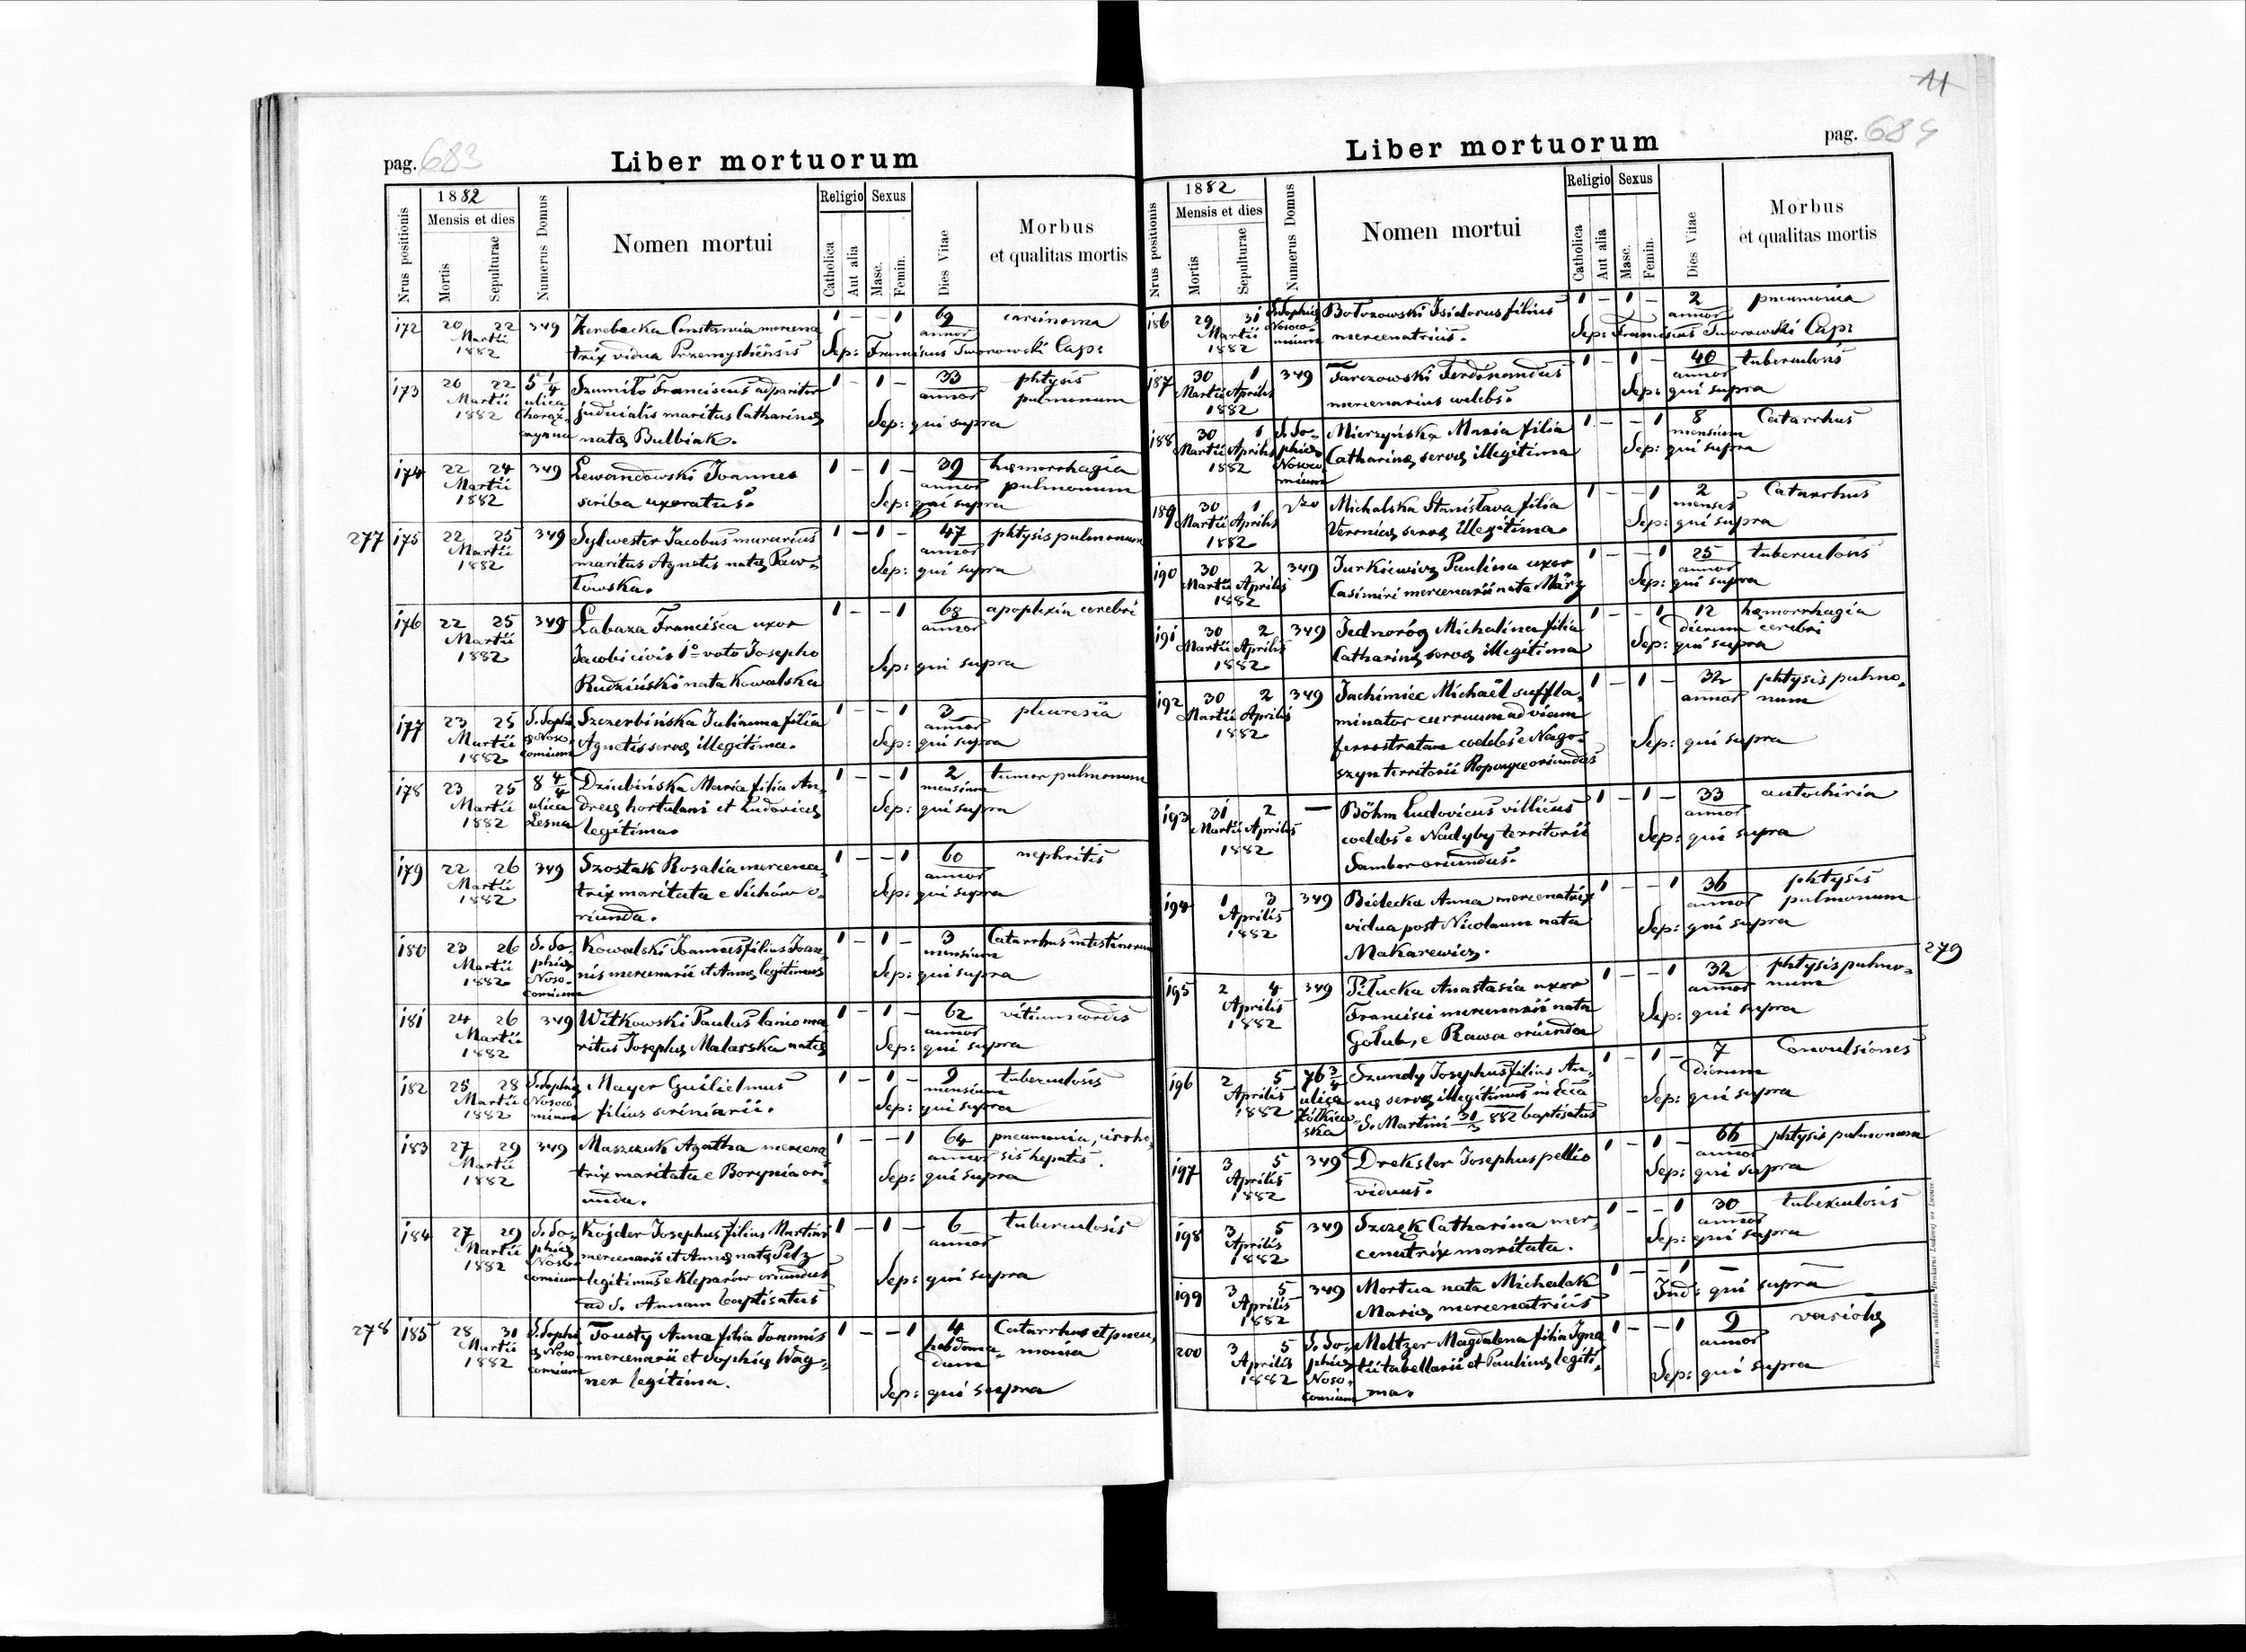 11
pag. 683
Liber mortuorum
Nrus positionis
1882
Mensis et dies
Mortis
Sepulturae
Numerus Domus
Nomen mortui
Religio
Catholica
Aut alia
Sexus
Masc.
Femin.
Dies Vitae
Morbus
et qualitas mortis
172 20 22 349 Zerebecka Constancia mercena 1 – – 1 69 carcinoma
Martii annor
1882 trix vidua Przemysliensis Sep: Franciscus Tworowski Cap:
173 20 22 5 1/4 Szumiło Franciscus apparitor 1 – 1 – 33 phtysis
Martii ulica annor pulmonum
1882 Chorąż- judicialis maritus Catharinę Sep: qui supra
czyzna natę Bulbiak.
174 22 24 349 Lewandowski Joannes 1 – 1 – 39 hæmorrhagia
Martii annor pulmonum
1882 scriba uxoratus. Sep: qui supra
277 175 22 25 349 Sylwester Jacobus murarius 1 – 1 – 47 phtysis pulmonum
Martii maritus Agnetis natę Paw- annor
1882 łowska. Sep: qui supra
176 22 25 349 Łabaza Francisca uxor 1 – – 1 68 apoplexia cerebri
Martii annor
1882 Jacobi civis 1º voto Josepho Sep: qui supra
Rudziński nata Kowalska
177 23 25 S. Sophi Szczerbińska Julianna filia 1 – – 1 3 pleuresia
Martii ę Noso- annor
1882 comium Agnetis servę illegitima. Sep: qui supra
178 23 25 8 4/4 Dziubińska Maria filia An- 1 – – 1 2 tumor pulmonum
Martii ulica dreę hortulani et Ludovicę mensium
1882 Lesna legitima. Sep: qui supra
179 22 26 349 Szostak Rosalia mercena- 1 – – 1 60 nephritis
Martii trix maritata e Sichów o- annor
1882 riunda. Sep: qui supra
180 23 26 S. So- Kowalski Joannes filius Joan- 1 – 1 – 3 Catarrhus intestinorum
Martii phię mensium
1882 Noso- nis mercenarii et Annę legitimus Sep: qui supra
comium
181 24 26 349 Witkowski Paulus lanio ma- 1 – 1 – 62 vitium cordis
Martii annor
1882 ritus Josephę Malarska natę Sep: qui supra
182 25 28 S. Sophię Mayer Guilielmus 1 – 1 – 9 tuberculosis
Martii Nosoco mensium
1882 mium filius scriniarii. Sep: qui supra
183 27 29 349 Maszczuk Agatha mercena 1 – – 1 64 pneumonia, cirrho-
Martii trix maritata e Borynia ori- annor sis hepatis.
1882 unda. Sep: qui supra
184 27 29 S. So- Kojder Josephus filius Martini 1 – 1 – 6 tuberculosis
Martii phię mercenarii et Annę natę Pelz annor
1882 Noso-
comium legitimus e Kleparów oriundus Sep: qui supra
ad S. Annam baptisatus
278 185 28 31 S. Sophi Tousty Anna filia Joannis 1 – – 1 4 Catarrhus et pneu-
Martii ę Noso- mercenarii et Sophię Wag- hebdoma- monia
1882 comium dum
ner legitima. Sep: qui supra
Liber mortuorum
pag. 684
Nrus positionis
1882
Mensis et dies
Mortis
Sepulturae
Numerus Domus
Nomen mortui
Religio
Catholica
Aut alia
Sexus
Masc.
Femin.
Dies Vitae
Morbus
et qualitas mortis
186 29 31 S. Sophię Bołozowski Isidorus filius 1 – 1 – 2 pneumonia
Martii Nosoco- annor
1882 mium mercenatricis. Sep: Franciscus Tworowski Cap:
187 30 1 349 Tarczowski Ferdinandus 1 – 1 – 40 tuberculosis
Martii Aprilis annor
1882 mercenarius cœlebs. Sep: qui supra
188 30 1 S. So- Mierzyńska Maria filia 1 – – 1 8 Catarrhus
Martii Aprilis phię mensium
1882 Nosoco Catharinę servę illegitima Sep: qui supra
mium
189 30 1 Michalska Stanislava filia 1 – – 1 2 Catarrhus
Martii Aprilis menses
1882 Veronicę servę illegitima. Sep: qui supra
190 30 2 349 Jurkiewicz Paulina uxor 1 – – 1 25 tuberculosis
Martii Aprilis annor
1882 Casimiri mercenarii nata März Sep: qui supra
191 30 2 349 Jednoróg Michalina filia 1 – – 1 12 hęmorrhagia
Martii Aprilis dierum cerebri
1882 Catharinę servę illegitima Sep: qui supra
192 30 2 349 Jachimiec Michaël suffla- 1 – 1 – 32 phtysis pulmo-
Martii Aprilis minator curruum ad viam annor num
1882 ferrostratam cœlebs e Nago- Sep: qui supra
szyn territorii Ropczyce oriundus
193 31 2 — Böhm Ludovicus villicus 1 – 1 – 33 autochiria
Martii Aprilis cœlebs e Nadyby territorii annor
1882 Sambor oriundus. Sep: qui supra
194 1 3 349 Bielecka Anna mercenatrix 1 – – 1 36 phtysis
Aprilis vidua post Nicolaum nata annor pulmonum
1882 Makarewicz. Sep: qui supra
195 2 4 349 Piłucka Anastasia uxor 1 – – 1 32 phtysis pulmo- 279
Aprilis Francisci mercenarii nata annor num
1882 Gołub, e Rawa oriunda Sep: qui supra
196 2 5 76 3/4 Szundy Josephus filius An- 1 – 1 – 7 Convulsiones
Aprilis ulica nę servę illegitimus in Ecca dierum
1882 Żółkiew S. Martini 31/3 882 baptisatus Sep: qui supra
ska
197 3 5 349 Dreksler Josephus pellio 1 – 1 – 66 phtysis pulmonum
Aprilis annor
1882 viduus. Sep: qui supra
198 3 5 349 Szczęk Catharina mer- 1 – – 1 30 tuberculosis
Aprilis annor
1882 cenatrix maritata. Sep: qui supra
199 3 5 349 Mortua nata Michalak 1 – – 1 – –
Aprilis
1882 Marię mercenatricis Ind: qui supra
200 3 5 S. So- Meltzer Magdalena filia Igna 1 – – 1 9 variolę
Aprilis phię tii tabellarii et Paulinę legiti- annor
1882 Noso-
comium ma. Sep: qui supra